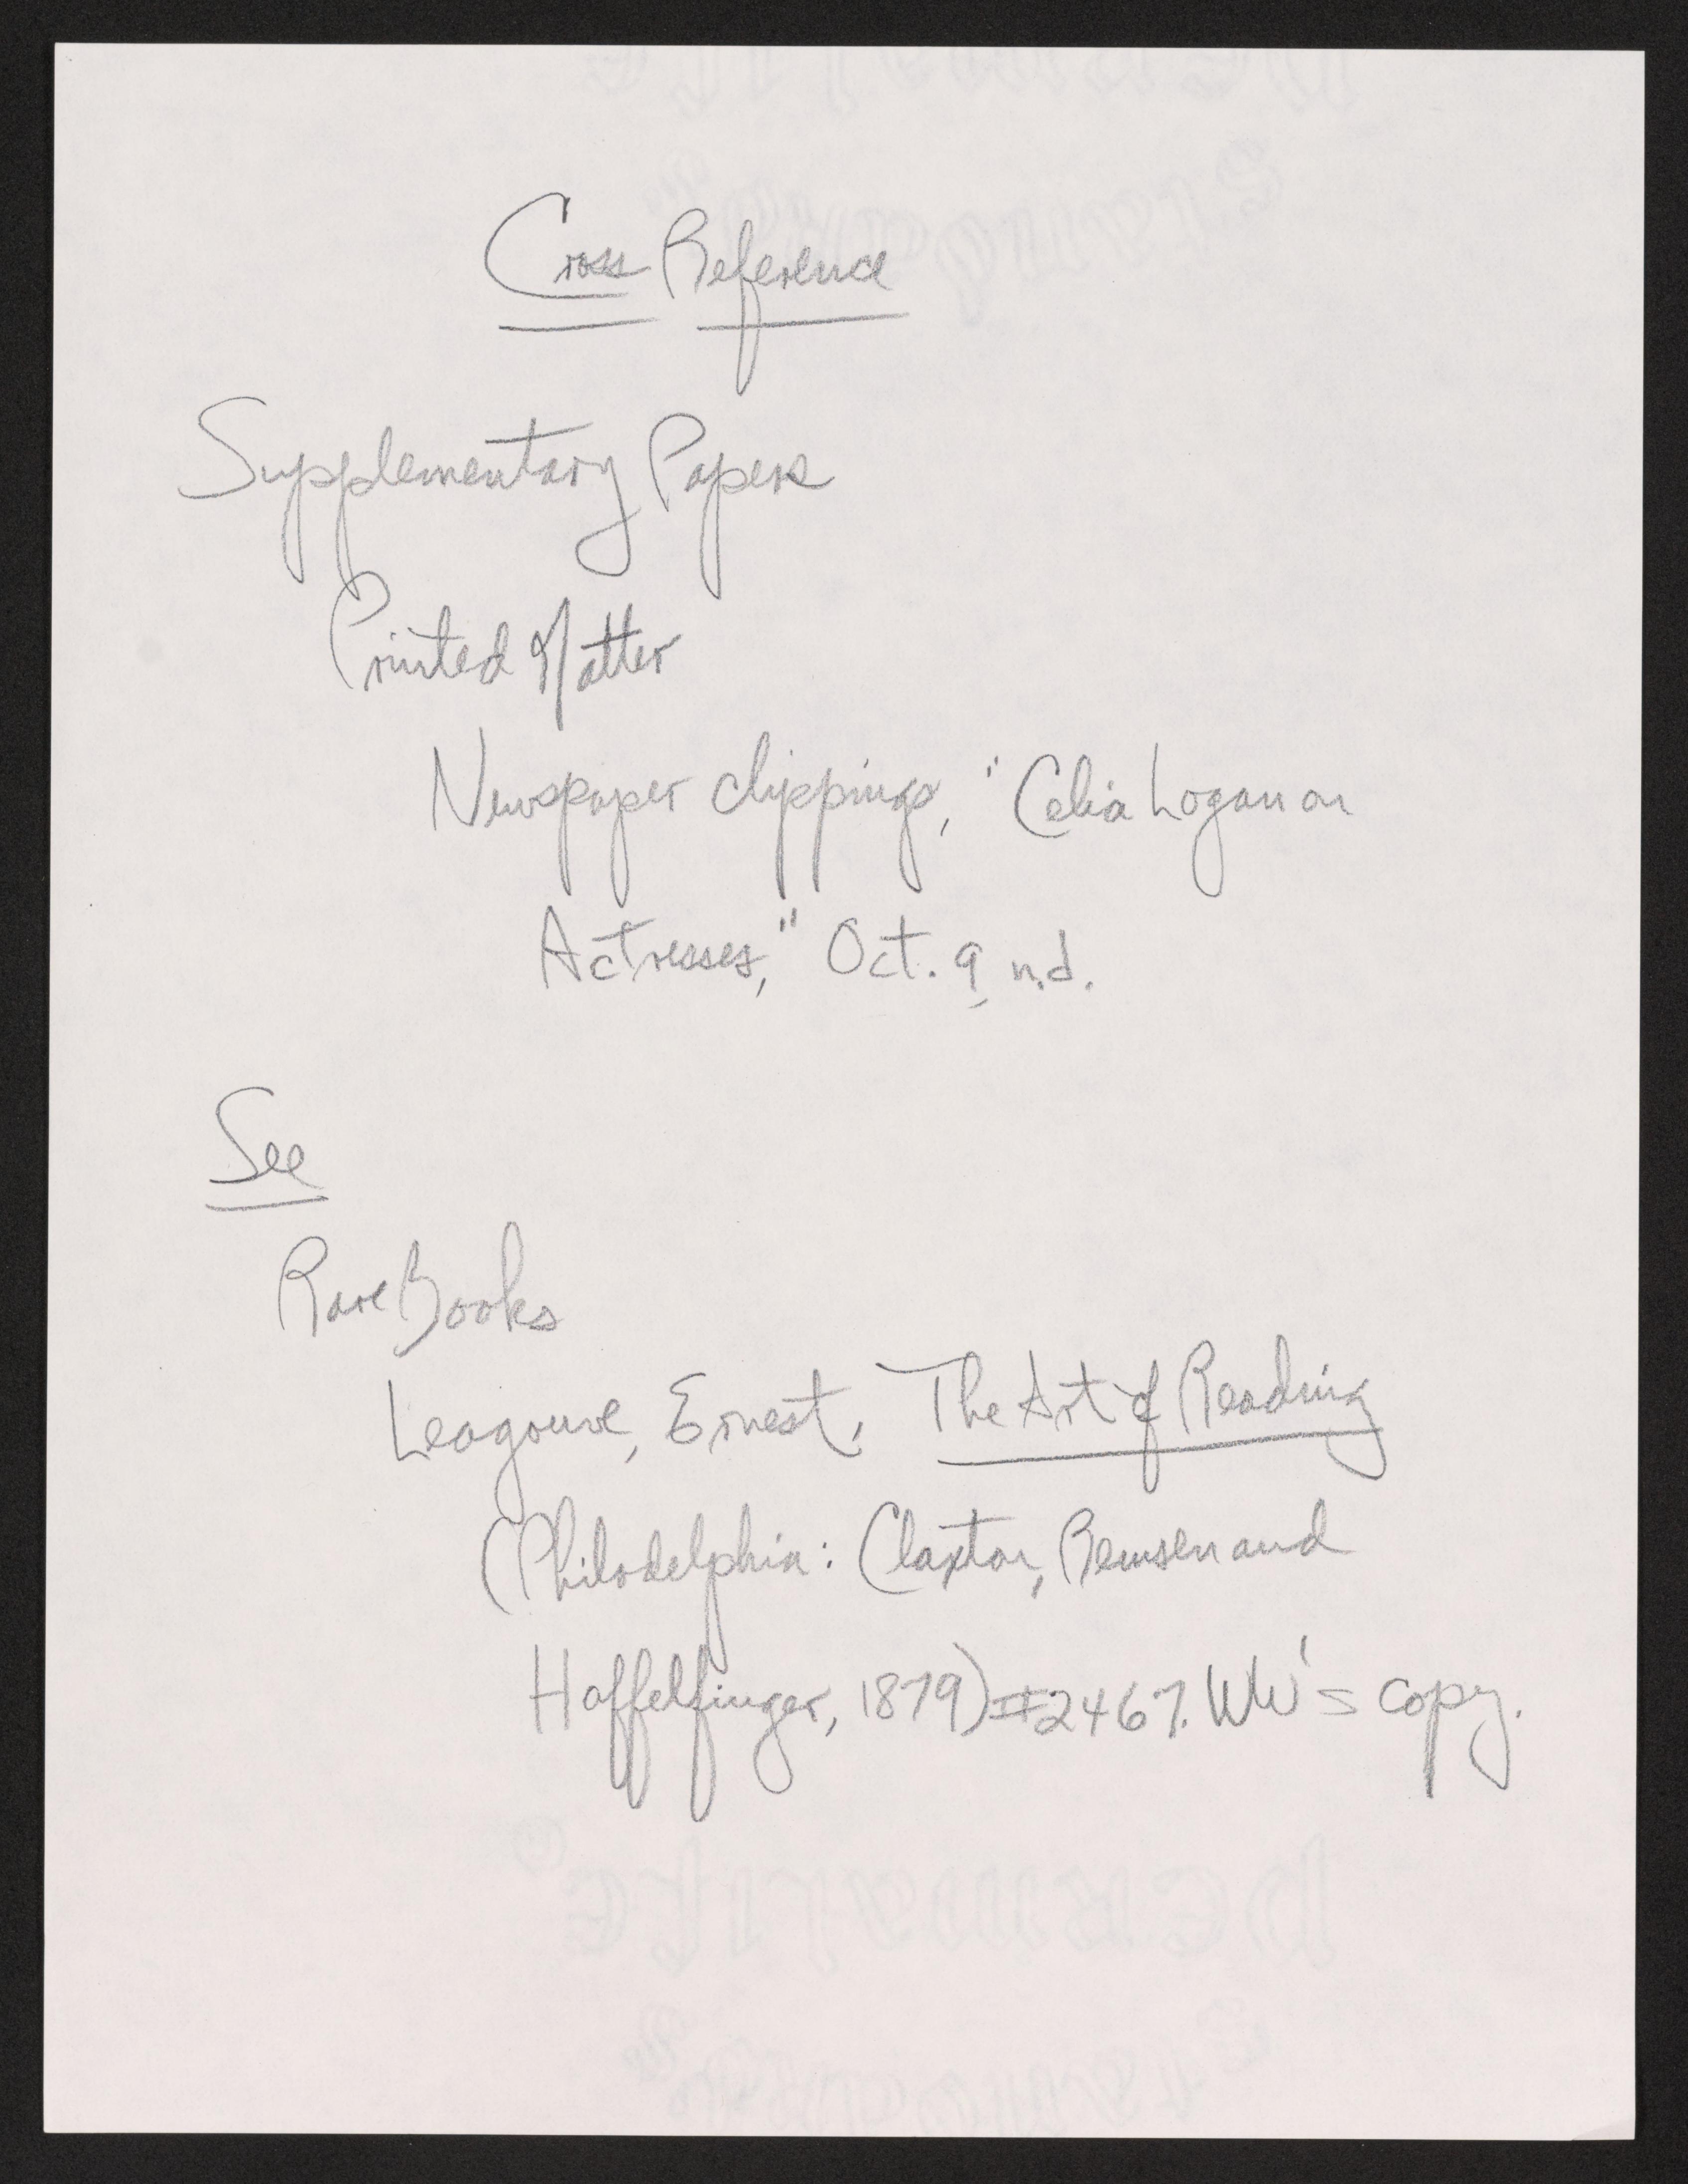 Cross Reference
Supplementary Papers
Printed Matter
Newspaper clippings, "Celia Logan on
Actresses," Oct. 9, n.d.
See
Rare Books
Leagouve, Ernest, The Art of Reading
(Philadelphia: Claxton, Remsen and
Haffelfinger, 1879) #2467. WW's copy.